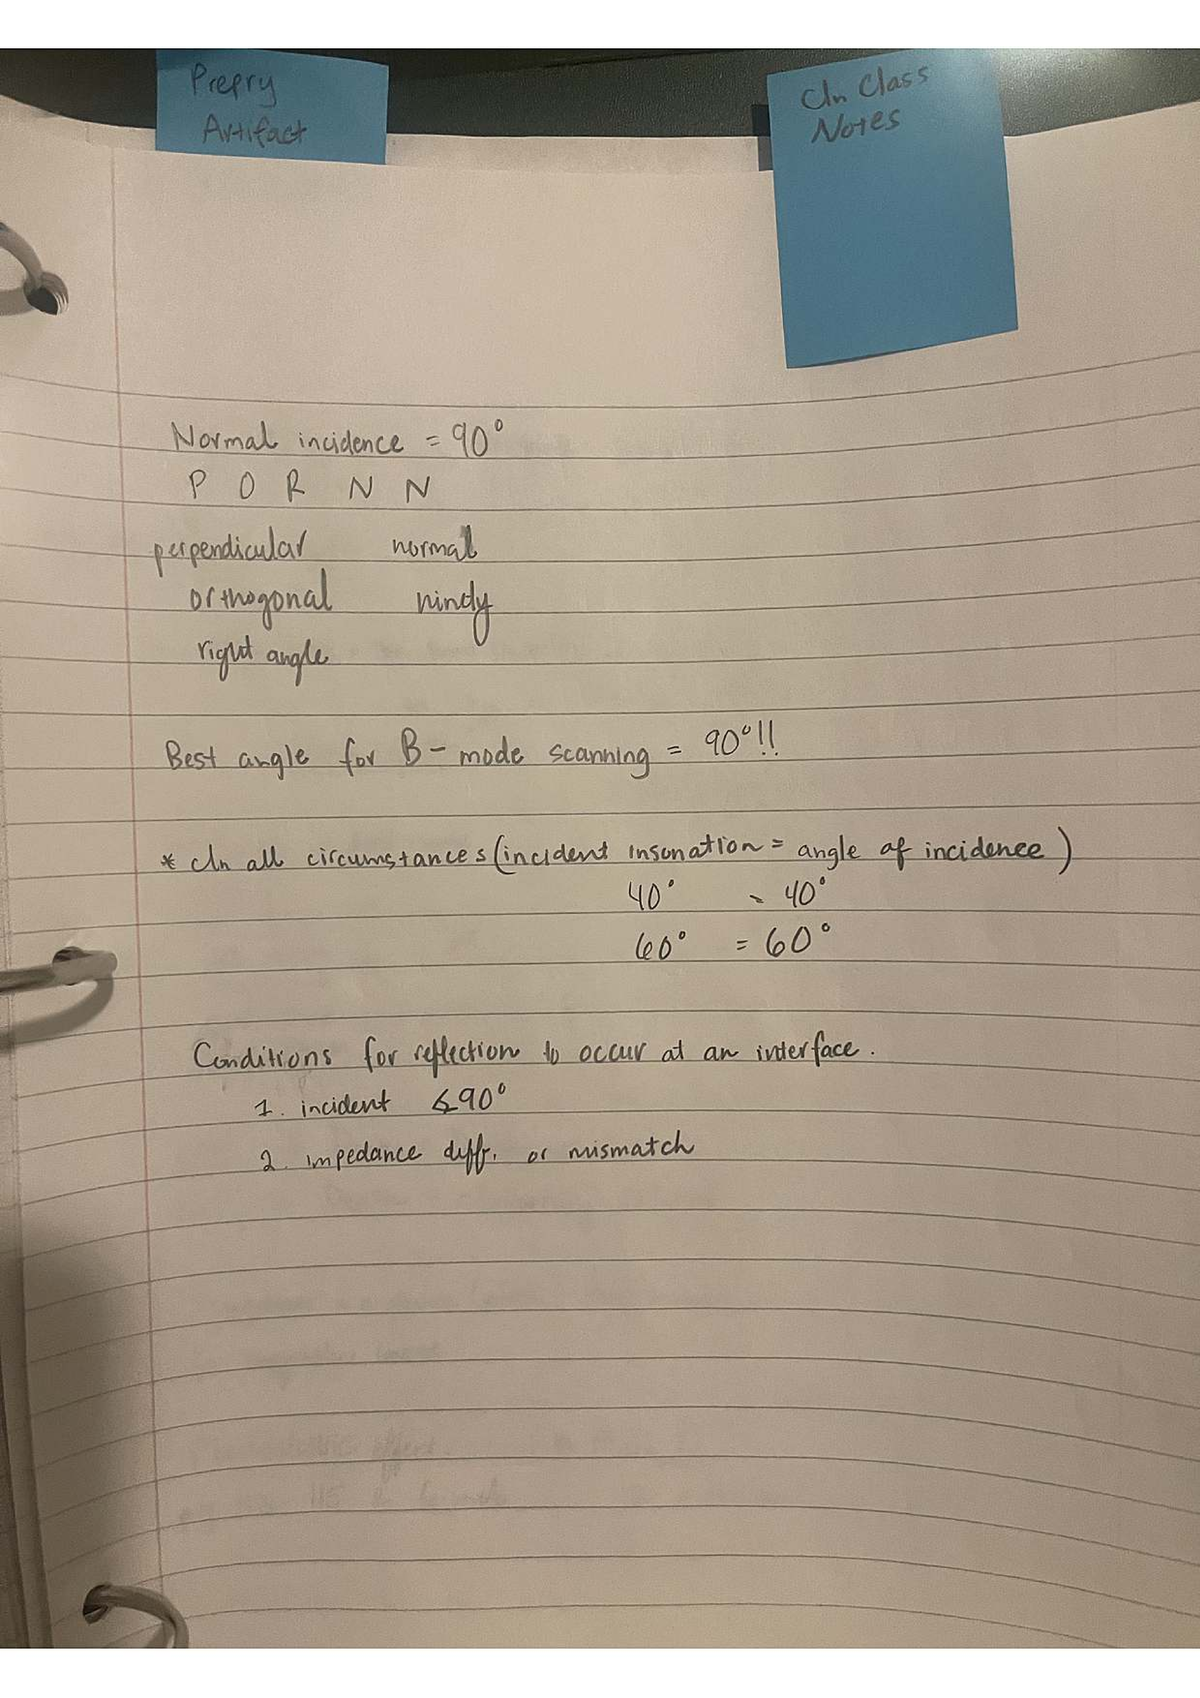 Prepry
Artifact
In Class
Notes
Normal incidence = 90°
P O R N N
perpendicular normal
orthogonal nindy
right angle
Best angle for B-mode scanning = 90°!!
* In all circumstances (incident insonation = angle of incidence)
40° = 40°
60° = 60°
Conditions for reflection to occur at an interface.
1. incident ∡90°
2. impedance diff. or mismatch